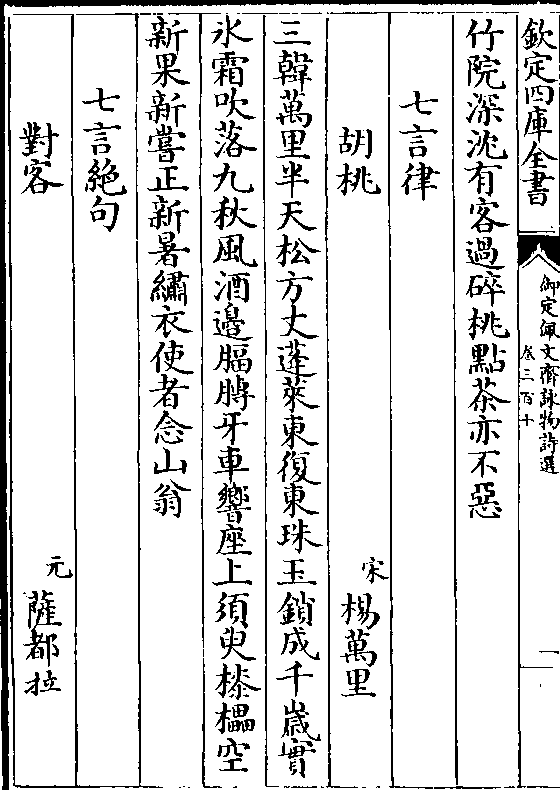 欽定四庫全書
御定佩文齋詠物詩選
卷三百十
一
竹院深沈有客過碎桃點茶亦不惡
七言律
胡桃
宋 楊萬里
三韓萬里半天松方丈蓬萊東復東珠玉鎖成千歲實
氷霜吹落九秋風酒邊膈膊牙車響座上須臾𣗳欙空
新果新嘗正新暑繡衣使者念山翁
七言絶句
對客
元 薩都拉